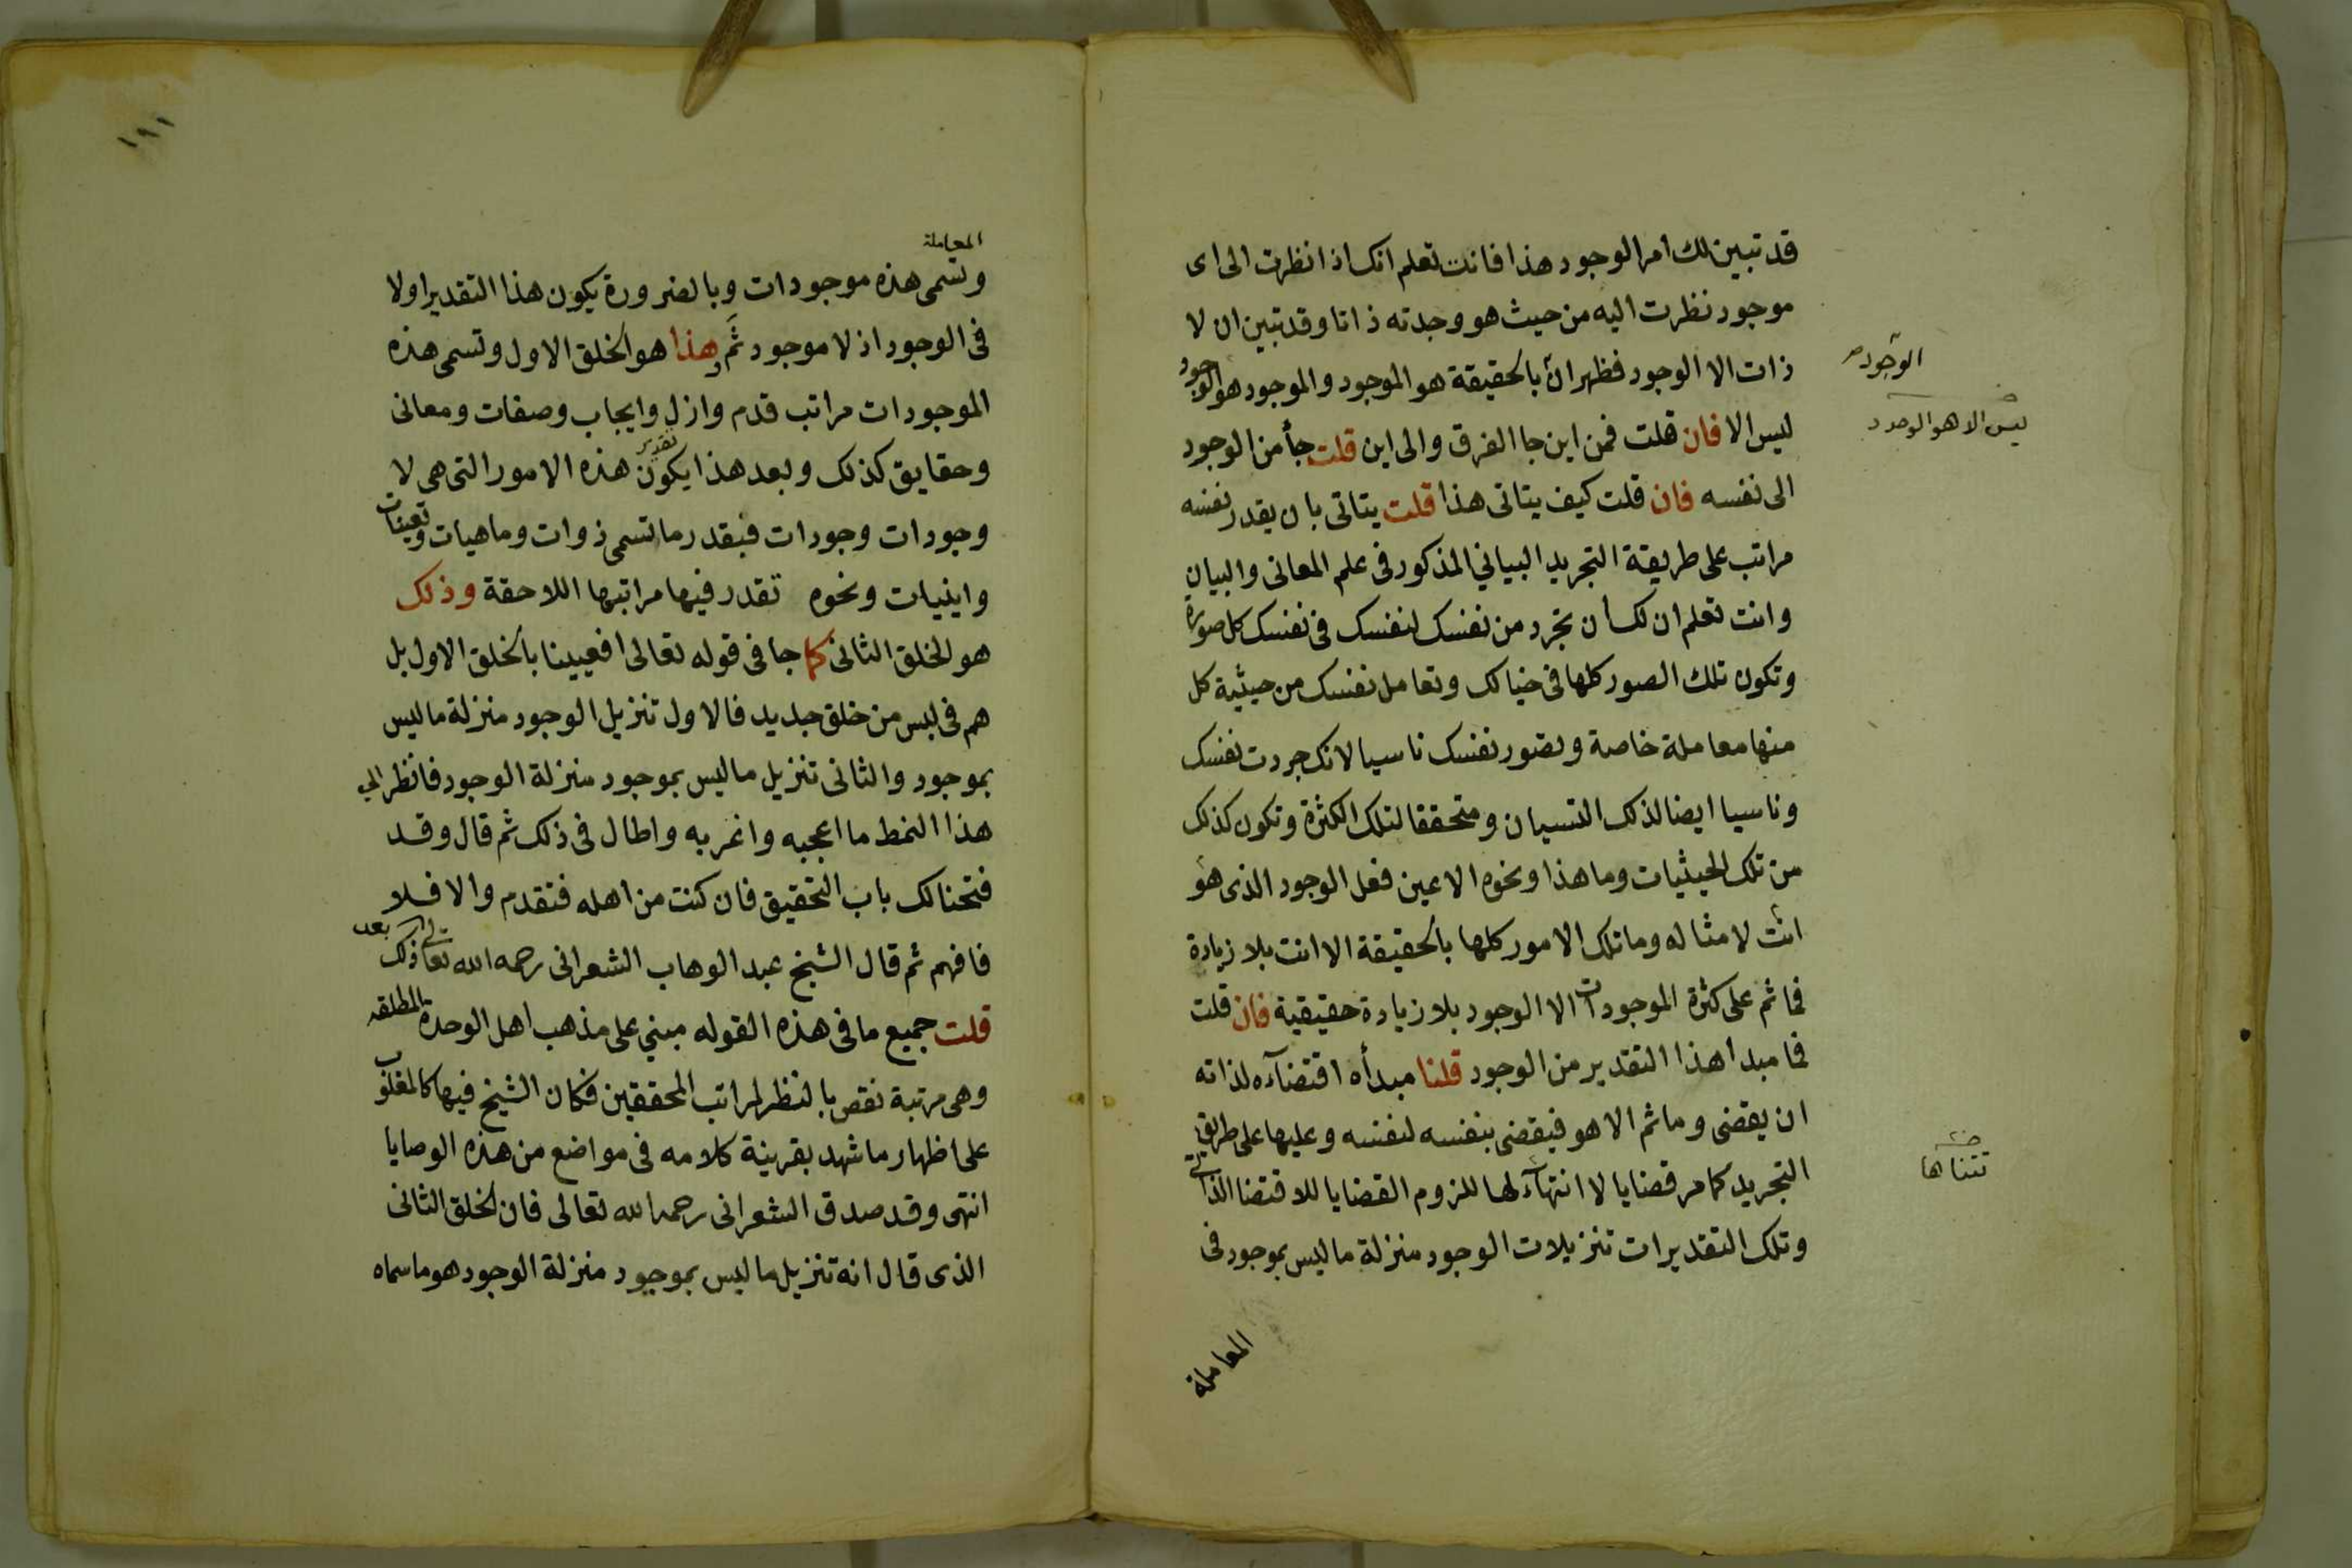 قد تبين لك امر الوجود هذا فانت تعلم انك اذا نظرت الى اى
موجود نظرت اليه من حيث هو وجدته ذاتا وقد تبين ان لا
ذات الا الوجود فظهر ان بالحقيقة هو الموجود والموجود هو الوجود
الوجود صح
ليس الا فان قلت فمن اين جا الفرق والى اين قلت جأ من الوجود
ليس الا هو الوجود
الى نفسه فان قلت كيف يتاتى هذا قلت يتاتى بان يقدر نفسه
مراتب على طريقة التجريد البياني المذكور فى علم المعانى والبيان
وانت تعلم ان لك أن تجرد من نفسك لنفسك فى نفسك كل صورة
وتكون تلك الصور كلها فى خيالك وتعامل نفسك من حيثية كل
منها معاملة خاصة وتصور نفسك ناسيا لانك جردت نفسك
وناسيا ايضا لذلك النسيان ومتحققا لتلك الكثرة وتكون كذلك
من تلك الحيثيات وما هذا ونحوه الا عين فعل الوجود الذى هو
انت لا مثاله وما تلك الامور كلها بالحقيقة الا انت بلا زيادة
فما ثم على كثرة الموجودات الا الوجود بلا زيادة حقيقية فان قلت
فما مبدا هذا التقدير من الوجود قلنا مبدأه اقتضآءه لذاته
ان يقضى وما ثم الا هو فيقضى بنفسه لنفسه وعليها على طريق
التجريد كما مر قضايا لا انتهآء لها للزوم القضايا للاقتضا الذاتى
تتناها
وتلك التقديرات تنزيلات الوجود منزلة ما ليس بموجود فى
المعاملة
١٩١
المعاملة
وتسمى هذه موجودات وبالضرورة يكون هذا التقدير اولا
فى الوجود اذ لا موجود ثَم وهذا هو الخلق الاول وتسمى هذه
الموجودات مراتب قدم وازل وايجاب وصفات ومعانى
وحقايق كذلك وبعد هذا يكون تقدير هذه الامور التى هى لا
وجودات وجودات فبقدر ما تسمى ذوات وماهيات وتعينات
واينيات ونحوه تقدر فيها مراتبها اللاحقة وذلك
هو الخلق الثانى كما جا فى قوله تعالى افعيينا بالخلق الاول بل
هم فى لبس من خلق جديد فالاول تنزيل الوجود منزلة ما ليس
بموجود والثانى تنزيل ما ليس بموجود منزلة الوجود فانظر الى
هذا النمط ما اعجبه واغربه واطال فى ذلك ثم قال وقد
فتحنا لك باب التحقيق فان كنت من اهله فتقدم والا فلا
فافهم ثم قال الشيخ عبد الوهاب الشعرانى رحمه الله تعالى بعد ذلك
قلت جميع ما فى هذه القوله مبني على مذهب اهل الوحدة المطلقه
وهى مرتبة نقص بالنظر لمراتب المحققين فكان الشيخ فيها كالمغلوب
على اظهار ما شهد بقرينة كلامه فى مواضع من هذه الوصايا
انتهى وقد صدق الشعرانى رحمه الله تعالى فان الخلق الثانى
الذى قال انه تنزيل ما ليس بموجود منزلة الوجود هو ما سماه